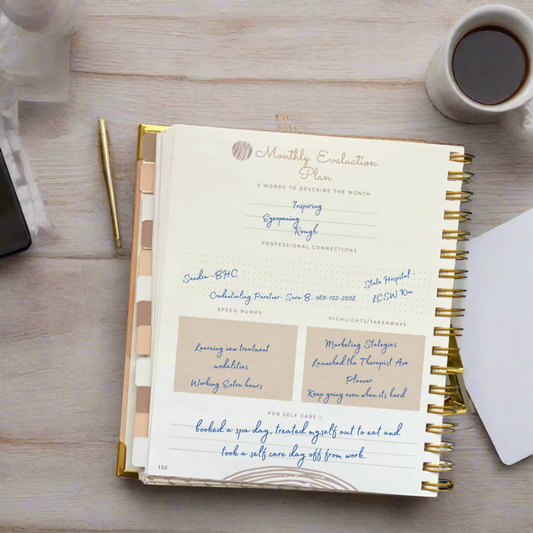 Monthly Evaluation
Plan
3 WORDS TO DESCRIBE THE MONTH
Inspiring
Eyeopening
Rough
PROFESSIONAL CONNECTIONS
Sandra-BHC
State Hospital -
Credentialing Paretner- Sara B. 480-122-2008
LCSW Kim
SPEED BUMPS
HIGHLIGHTS/TAKEAWAYS
Learning new treatment
modalities
Working Extra hours
Marketing Statagies
Launched the Therapist Ave
Planner
Keep going even when its hard
FOR SELF CARE I:
booked a spa day, treated myself out to eat and
took a self care day off from work.
152